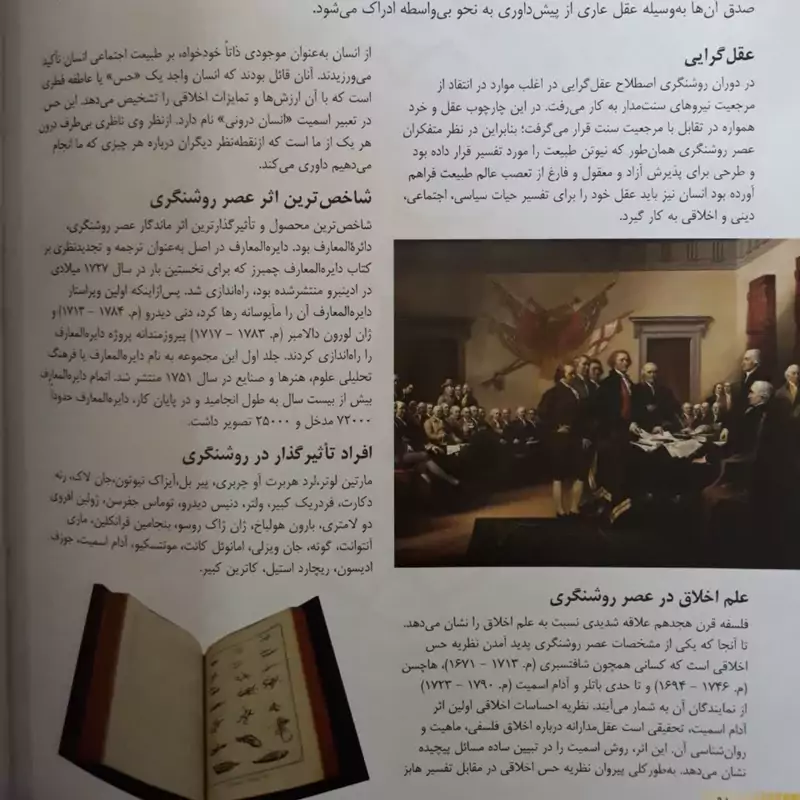 صدق آن‌ها به‌وسیله عقل عاری از پیش‌داوری به نحو بی‌واسطه ادراک می‌شود.
عقل‌گرایی
در دوران روشنگری اصطلاح عقل‌گرایی در اغلب موارد در انتقاد از
مرجعیت نیروهای سنت‌مدار به کار می‌رفت. در این چارچوب عقل و خرد
همواره در تقابل با مرجعیت سنت قرار می‌گرفت؛ بنابراین در نظر متفکران
عصر روشنگری همان‌طور که نیوتن طبیعت را مورد تفسیر قرار داده بود
و طرحی برای پذیرش آزاد و معقول و فارغ از تعصب عالم طبیعت فراهم
آورده بود انسان نیز باید عقل خود را برای تفسیر حیات سیاسی، اجتماعی،
دینی و اخلاقی به کار گیرد.
علم اخلاق در عصر روشنگری
فلسفه قرن هجدهم علاقه شدیدی نسبت به علم اخلاق را نشان می‌دهد.
تا آنجا که یکی از مشخصات عصر روشنگری پدید آمدن نظریه حس
اخلاقی است که کسانی همچون شافتسبری (م. ۱۷۱۳ - ۱۶۷۱)، هاچسن
(م. ۱۷۴۶ - ۱۶۹۴) و تا حدی باتلر و آدام اسمیت (م. ۱۷۹۰ - ۱۷۲۳)
از نمایندگان آن به شمار می‌آیند. نظریه احساسات اخلاقی اولین اثر
آدام اسمیت، تحقیقی است عقل‌مدارانه درباره اخلاق فلسفی، ماهیت و
روان‌شناسی آن. این اثر، روش اسمیت را در تبیین ساده مسائل پیچیده
نشان می‌دهد. به‌طورکلی پیروان نظریه حس اخلاقی در مقابل تفسیر هابز
از انسان به‌عنوان موجودی ذاتاً خودخواه، بر طبیعت اجتماعی انسان تأکید
می‌ورزیدند. آنان قائل بودند که انسان واجد یک «حس» یا عاطفه فطری
است که با آن ارزش‌ها و تمایزات اخلاقی را تشخیص می‌دهد. این حس
در تعبیر اسمیت «انسان درونی» نام دارد. ازنظر وی ناظری بی‌طرف درون
هر یک از ما است که ازنقطه‌نظر دیگران درباره هر چیزی که ما انجام
می‌دهیم داوری می‌کند.
شاخص‌ترین اثر عصر روشنگری
شاخص‌ترین محصول و تأثیرگذارترین اثر ماندگار عصر روشنگری،
دائرةالمعارف بود. دایره‌المعارف در اصل به‌عنوان ترجمه و تجدیدنظری بر
کتاب دایره‌المعارف چمبرز که برای نخستین بار در سال ۱۷۲۷ میلادی
در ادینبرو منتشرشده بود، راه‌اندازی شد. پس‌ازاینکه اولین ویراستار
دایره‌المعارف آن را مأیوسانه رها کرد، دنی دیدرو (م. ۱۷۸۴ - ۱۷۱۳) و
ژان لورون دالامبر (م. ۱۷۸۳ - ۱۷۱۷) پیروزمندانه پروژه دایره‌المعارف
را راه‌اندازی کردند. جلد اول این مجموعه به نام دایره‌المعارف یا فرهنگ
تحلیلی علوم، هنرها و صنایع در سال ۱۷۵۱ منتشر شد. اتمام دایره‌المعارف
بیش از بیست سال به طول انجامید و در پایان کار، دایره‌المعارف حدوداً
۷۲۰۰۰ مدخل و ۲۵۰۰۰ تصویر داشت.
افراد تأثیرگذار در روشنگری
مارتین لوتر،لرد هربرت آو چربری، پیر بل،آیزاک نیوتون،جان لاک، رنه
دکارت، فردریک کبیر، ولتر، دنیس دیدرو، توماس جفرسن، ژولین افروی
دو لامتری، بارون هولباخ، ژان ژاک روسو، بنجامین فرانکلین، ماری
آنتوانت، گوته، جان ویزلی، امانوئل کانت، مونتسکیو، آدام اسمیت، جوزف
ادیسون، ریچارد استیل، کاترین کبیر.